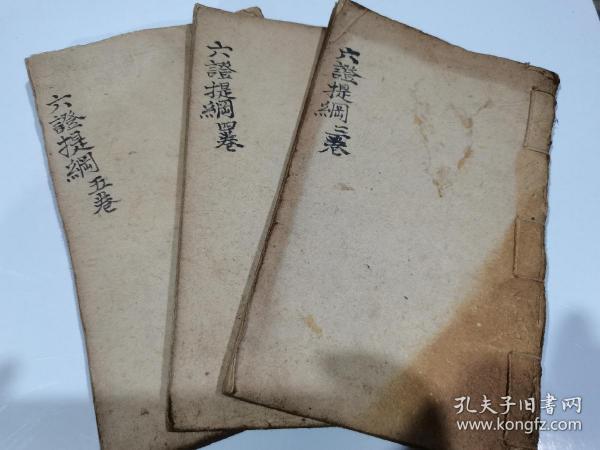 六證提綱 五卷
六證提綱 四卷
六證提綱 三卷
孔夫子旧书网
www.kongfz.com